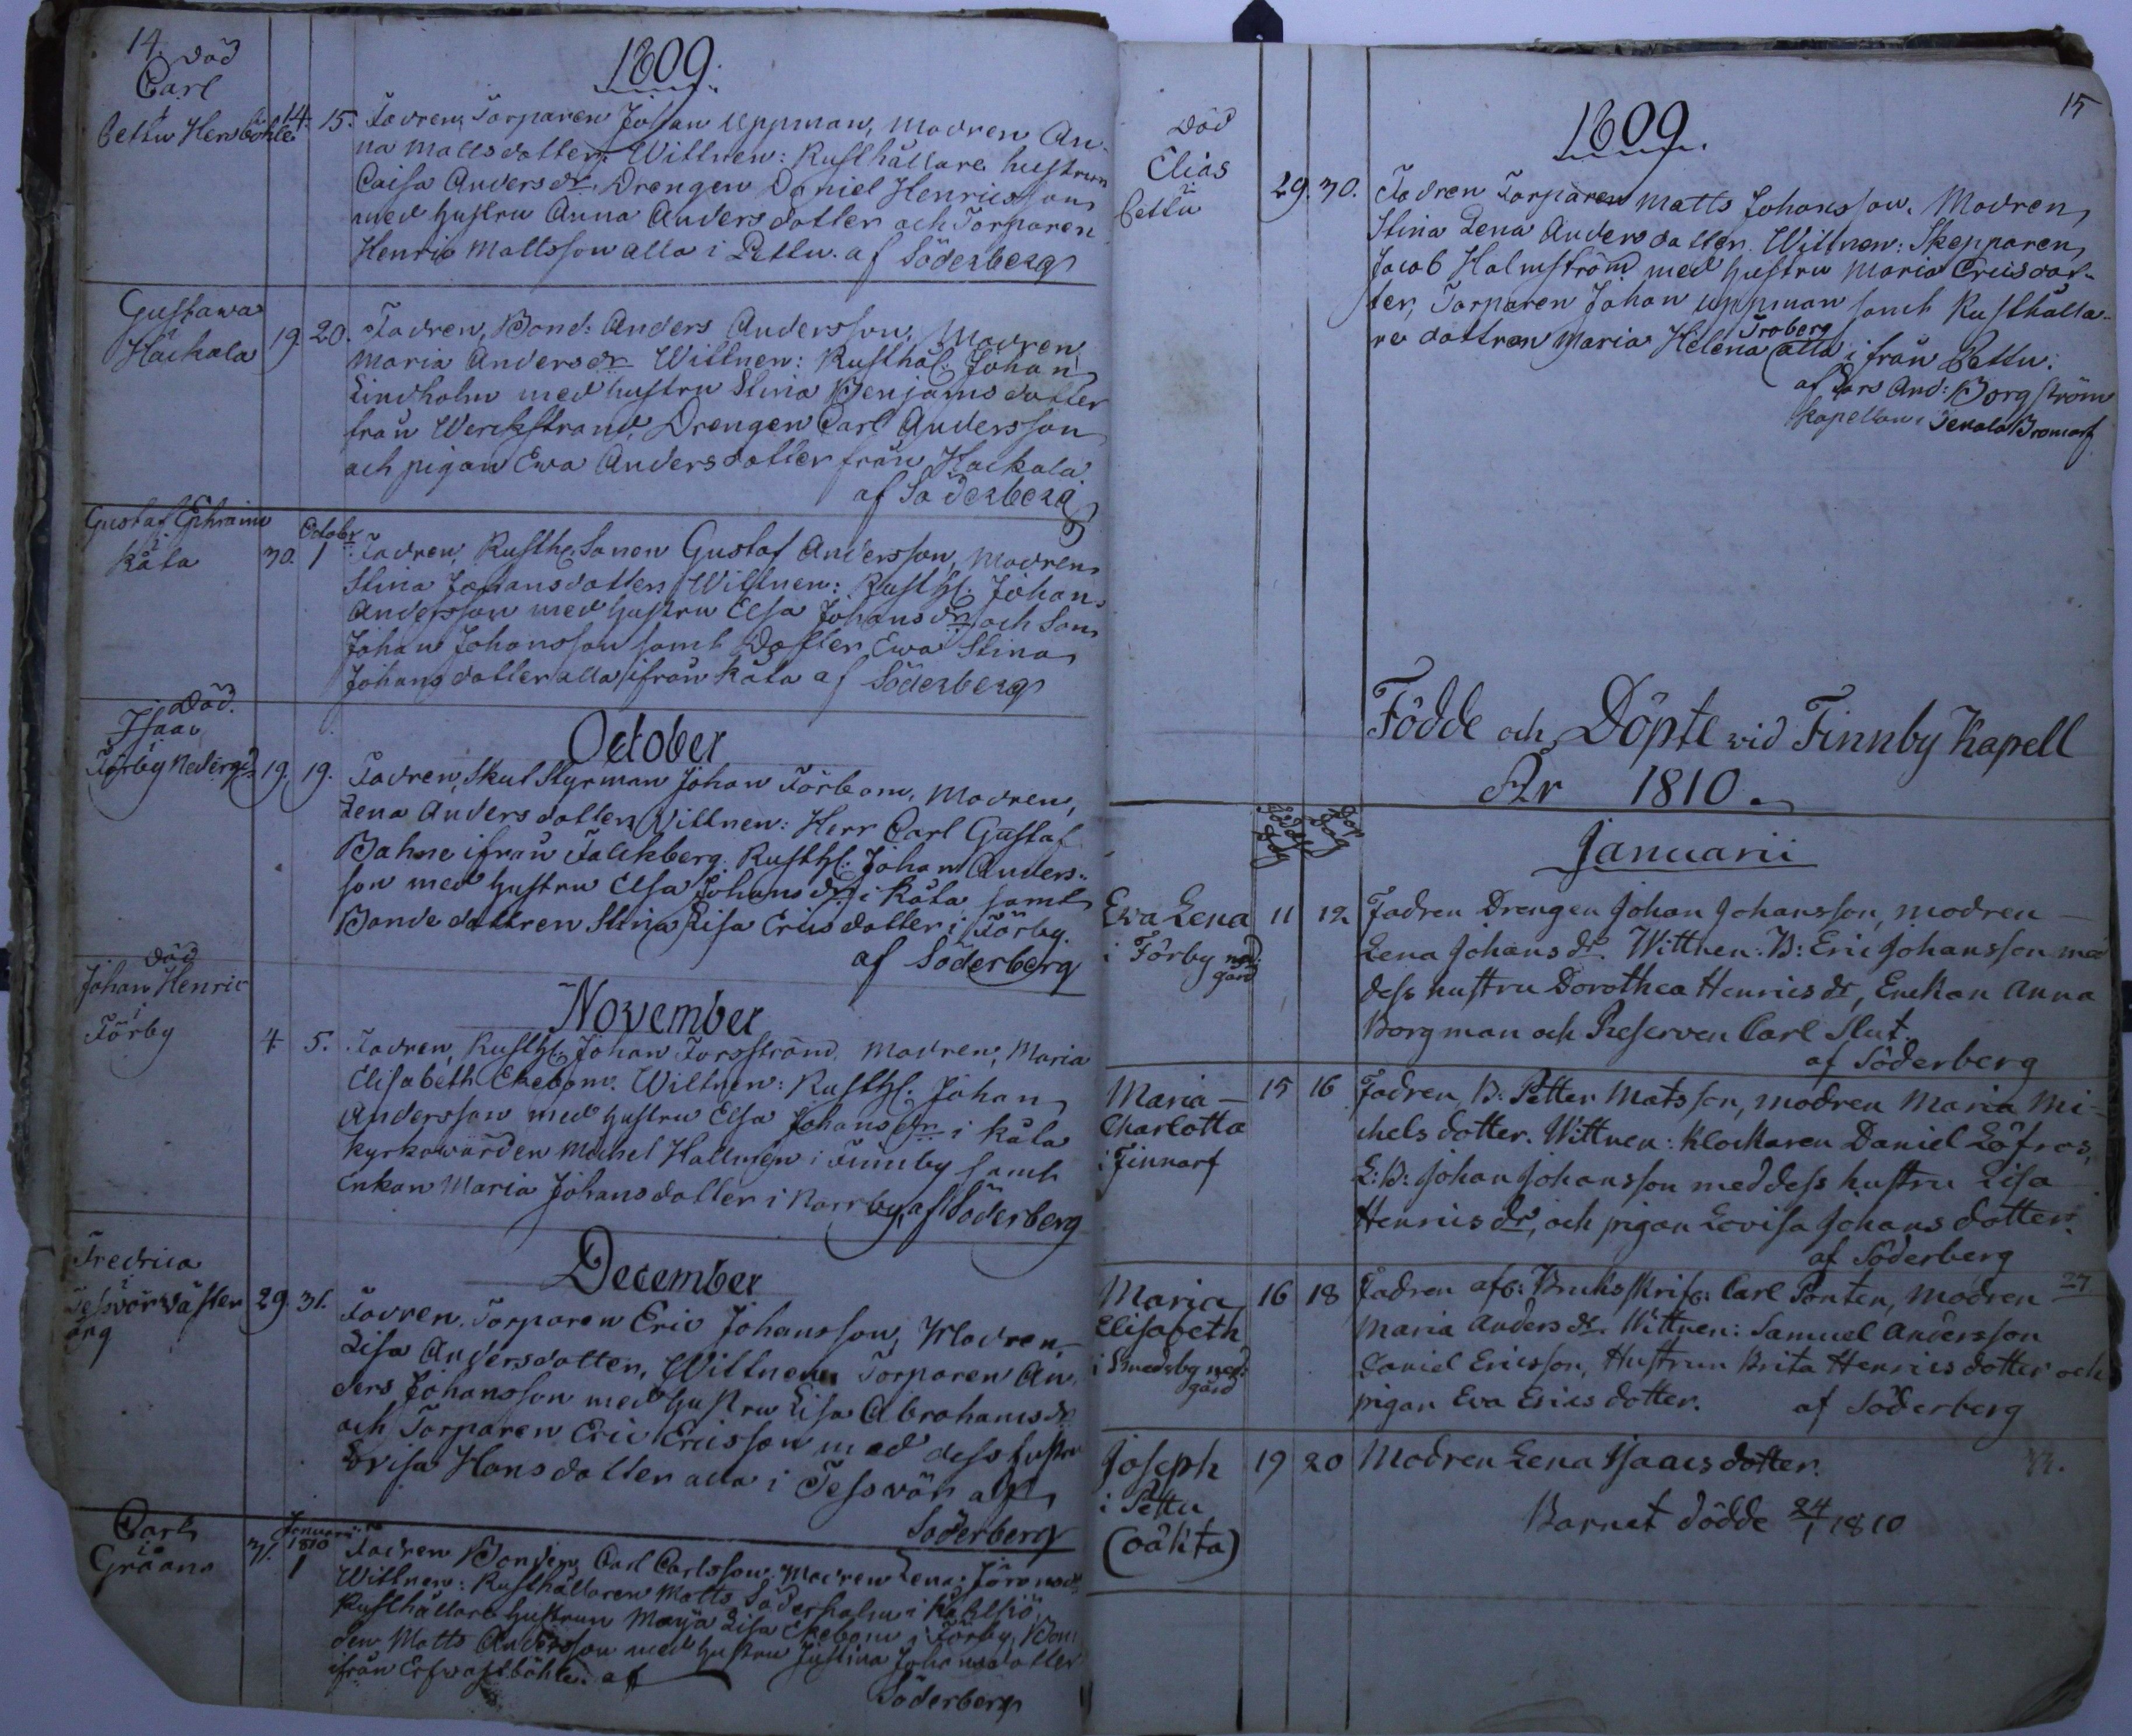 14.
1809.
död
Carl
i
Pettu Hersböhle
14. 15. Fadren, Torparen Johan Uppman, Modren An-
na Mattsdotter. Wittnen: Rusthållare hustrun
Caisa Andersdr. Drengen Daniel Henricsson
med hustru Anna Andersdotter och Torparen
Henric Mattsson alla i Pettu. af Söderberg
Gustawa
i
Hackala
19. 20. Fadren, Bond: Anders Andersson, Modren
Maria Andersdr Wittnen: Rusthål: Johan
Lindholm med hustru Stina Benjamsdotter
från Werckstrand, Drengen Carl Andersson
och pigan Ewa Andersdotter från Hackala.
af Söderberg
Gustaf Ephraim
i
Kåta
October
30. 1. Fadren, Rusth. Sonen Gustaf Andersson, Modren
Stina Johansdotter Wittnen: Rusthl. Johan
Andersson med hustru Elsa Johansdr och Son
Johan Johansson samt Dotter Ewa Stina
Johansdotter alla ifrån Kåta af Söderberg
October
död.
Isaac
i
Förby Nedergd
19. 19. Fadren, Skut Styrman Johan Förbom, Modren,
Lena Andersdotter Wittnen: Herr Carl Gustaf
Bahne ifrån Falckberg. Rusthl: Johan Anders-
son med hustru Elsa Johansdr i Kåta samt
Bonde dottren Stina Lisa Ericsdotter i Förby.
af Söderberg
November
död
Johan Henric
i
Förby
4. 5. Fadren, Rusthl: Johan Forsström. Modren, Maria
Elisabeth Ekebom. Wittnen: Rusthl. Johan
Andersson med hustru Elsa Johansdr i Kåta
Kyrkowärden Michel Hallmen i Finnby samt
Enkan Maria Johansdotter i Norrby, af Söderberg
December
Fredrica
i
Tessvär Wäster
äng
29. 31. Fadren, Torparen Eric Johansson, Modren,
Lisa Andersdotter, Wittnen Torparen An-
ders Johansson med hustru Lisa Abrahamsdr
och Torparen Eric Ericsson med dess hustru
Lovisa Hansdotter alla i Tessvär af
Söderberg
Carl
i
Gråänn
Januari
1810
31. 1 Fadren Bonden Carl Carlsson. Modren Lena Göransdr
Wittnen: Rusthållaren Matts Söderholm i
Rusthållare hustrun Maria Lisa Ekebom i Förby, Bon-
den Matts Andersson med hustru Justina Johansdotter
ifrån af
Söderberg
15
1809.
död
Elias
i
Pettu
29. 30. Fadren Torparen Matts Johansson. Modren,
Stina Lena Andersdotter. Wittnen: Skepparen,
Jacob Halmström med hustru Maria Ericsdot-
ter, Torparen Johan Uppman samt Rusthålla-
re dottren Maria Helena Froberg alla i från Pettu.
af Lars And: Borgström
kapellan i Tenala Bromarf
Födde och Döpte vid Finnby Kapell
År 1810.
Januarii
Eva Lena
i Förby ned:
gård
11 12. Fadren Drengen Johan Johansson, modren
Lena Johansdr. Wittnen: B: Eric Johansson med
dess hustru Dorothea Henricsdr, Enckan Anna
Borgman och Reserven Carl Slut.
af Söderberg
Maria
Charlotta
i Finnarf
15 16 Fadren B: Petter Matsson, modren Maria Mi-
chelsdotter. Wittnen: Klockaren Daniel Löfros,
L:B: Johan Johansson med dess hustru Lisa
Henricsdr, och pigan Lovisa Johansdotter.
af Söderberg
Maria
Elisabeth
i Smedsby ned:
gård
16 18 Fadren afs: Bruksskrif: Carl Ponten, Modren 27
Maria Andersdr. Wittnen: Samuel Andersson
Daniel Ericsson, Hustrun Brita Henricsdotter och
pigan Eva Ericsdotter. af Söderberg
Joseph
i Pettu
(oäkta)
19 20 Modren Lena Isaacsdotter.
Barnet dödde 24/1 1810